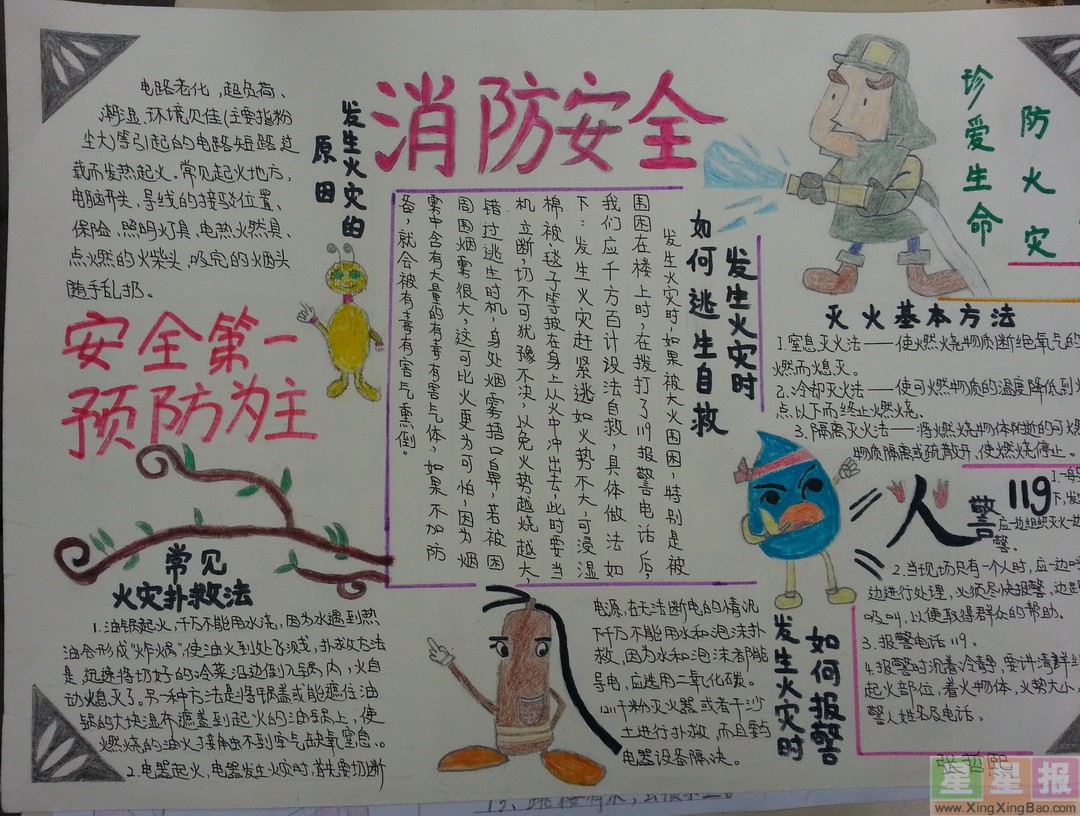 消防安全
发生火灾的
原因
电路老化，超负荷、
潮湿、环境见佳(主要指粉
尘大)等引起的电路短路过
载而发热起火。常见起火地方，
电脑开关、导线的接驳位置、
保险、照明灯具、电热火然具、
点燃的火柴头，吸完的烟头
随手乱扔。
安全第一
预防为主
发生火灾时
如何逃生自救
发生火灾时，如果被大火围困，特别是被
围困在楼上时，在拨打了119报警电话后，
我们应千方百计设法自救，具体做法如
下：发生火灾赶紧逃如火势不大，可浸湿
棉被、毯子等披在身上从火中冲出去，此时要当
机立断，切不可犹豫不决，以免火势越烧越大，
错过逃生时机，身处烟雾捂口鼻，若被困
周围烟雾很大，这可比火更为可怕，因为烟
雾中含有大量的有毒有害气体，如果不加防
备，就会被有毒有害气熏倒。
珍爱生命
防火灾
灭火基本方法
1.窒息灭火法——使燃烧物质断绝氧气的
燃而熄灭。
2.冷却灭火法——使可燃物质的温度降低到
点以下而终止燃烧。
3.隔离灭火法——将燃烧物体附近的可燃
物质隔离或疏散开，使燃烧停止。
人
警119
应一边组织灭火一边
警。
2.当现场只有一个人时，应一边呼
边进行处理，必须尽快报警，边跑
吸叫，以便取得群众的帮助。
3.报警电话119。
4.报警时沉着冷静，要讲清鲜
起火部位，着火物体，火势大小，
警人姓名及电话。
发生火灾时
如何报警
常见
火灾扑救法
1.油锅起火，千万不能用水浇，因为水遇到热
油会形成“炸锅”，使油火到处飞溅，扑救方法
是，迅速将切好的冷菜沿边倒入锅内，火自
动熄灭了。另一种方法是将锅盖或能遮住油
锅的大块湿布遮盖到起火的油锅上，使
燃烧的油火接触不到空气缺氧窒息。
2.电器起火，电器发生火灾时，首先要切断
电源，在无法断电的情况
下千万不能用水和泡沫扑
救，因为水和泡沫都能
导电，应选用二氧化碳。
1211干粉灭火器或者干沙
土进行扑救，而且要与
电器设备隔决。
张哲熙
星星报
www.XingXingBao.com